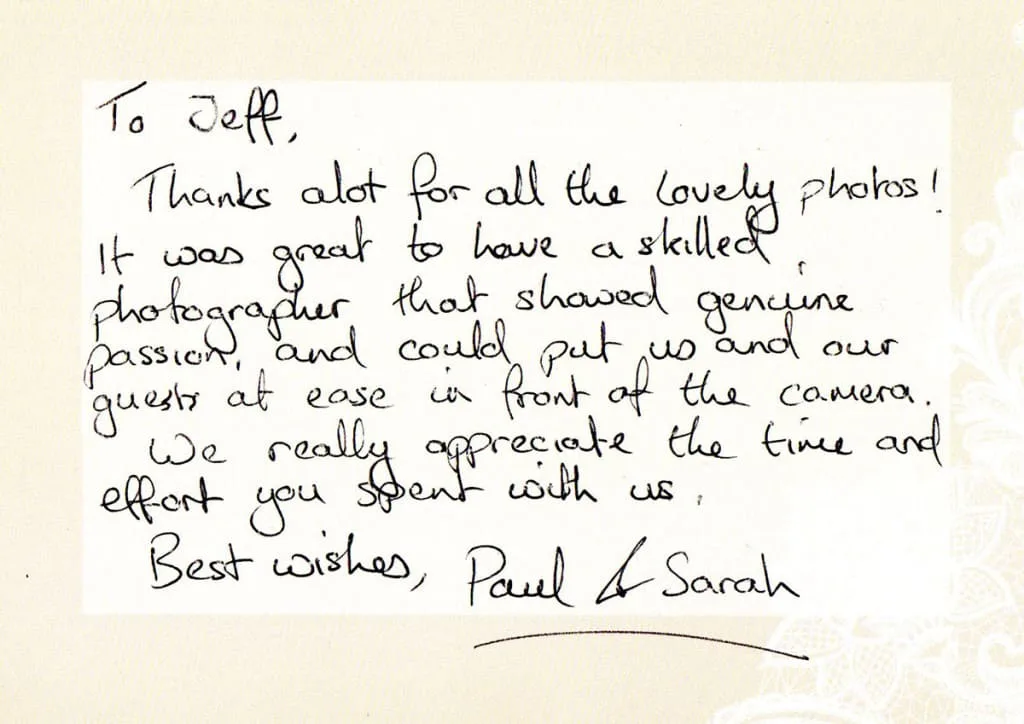 To Jeff,
Thanks alot for all the lovely photos!
It was great to have a skilled
photographer that showed genuine
passion, and could put us and our
guests at ease in front of the camera.
We really appreciate the time and
effort you spent with us.
Best wishes, Paul & Sarah